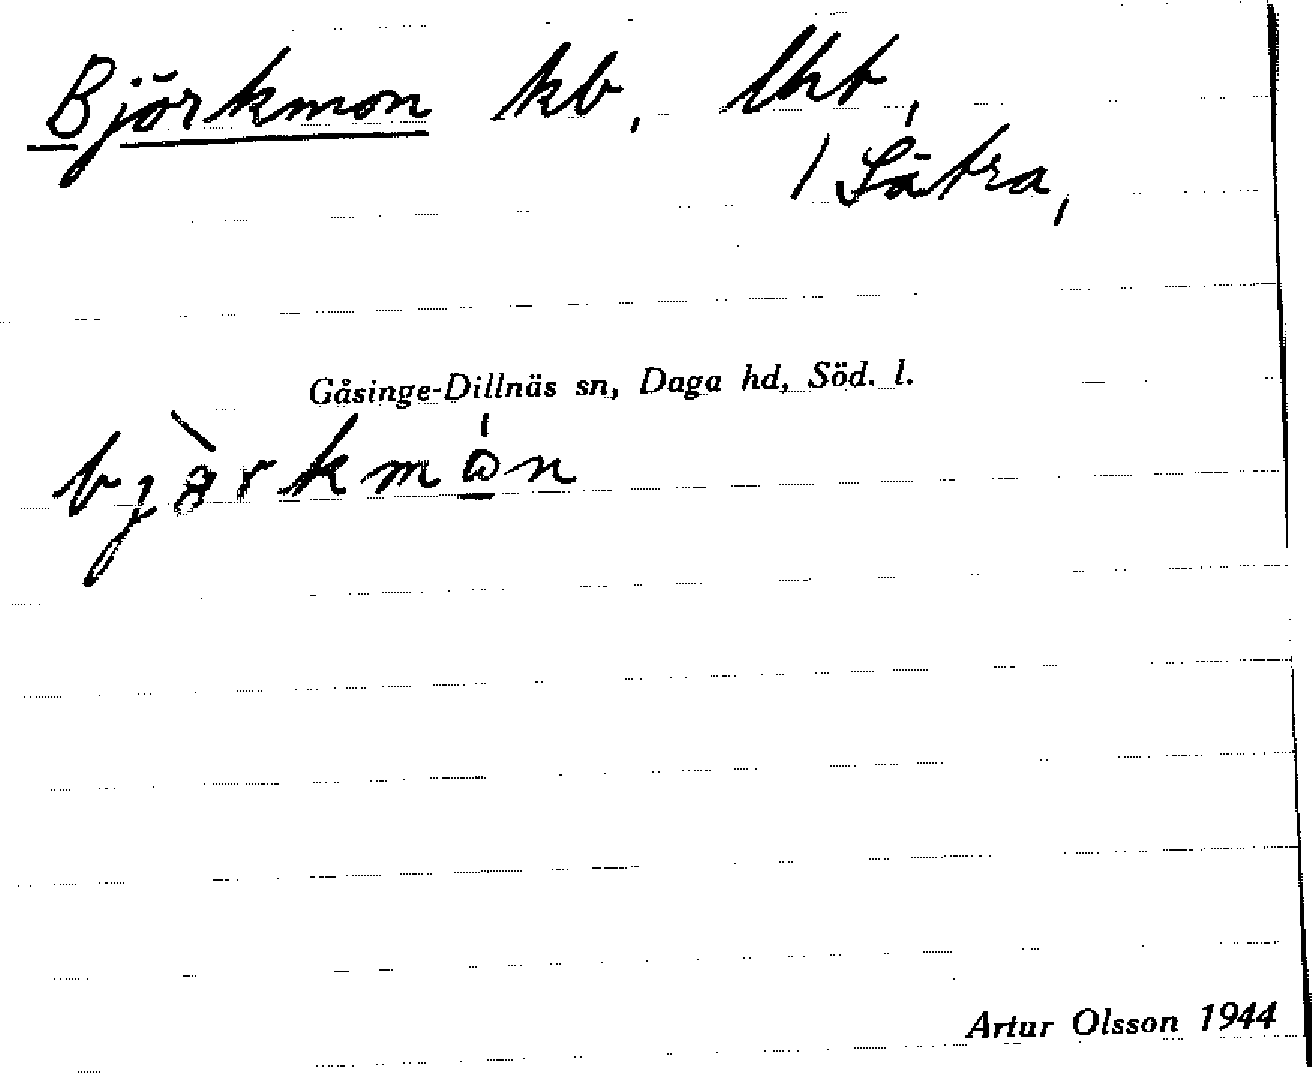 Björkmon kb, lht,
/ Sätra,
Gåsinge-Dillnäs sn, Daga hd, Söd. l.
Artur Olsson 1944